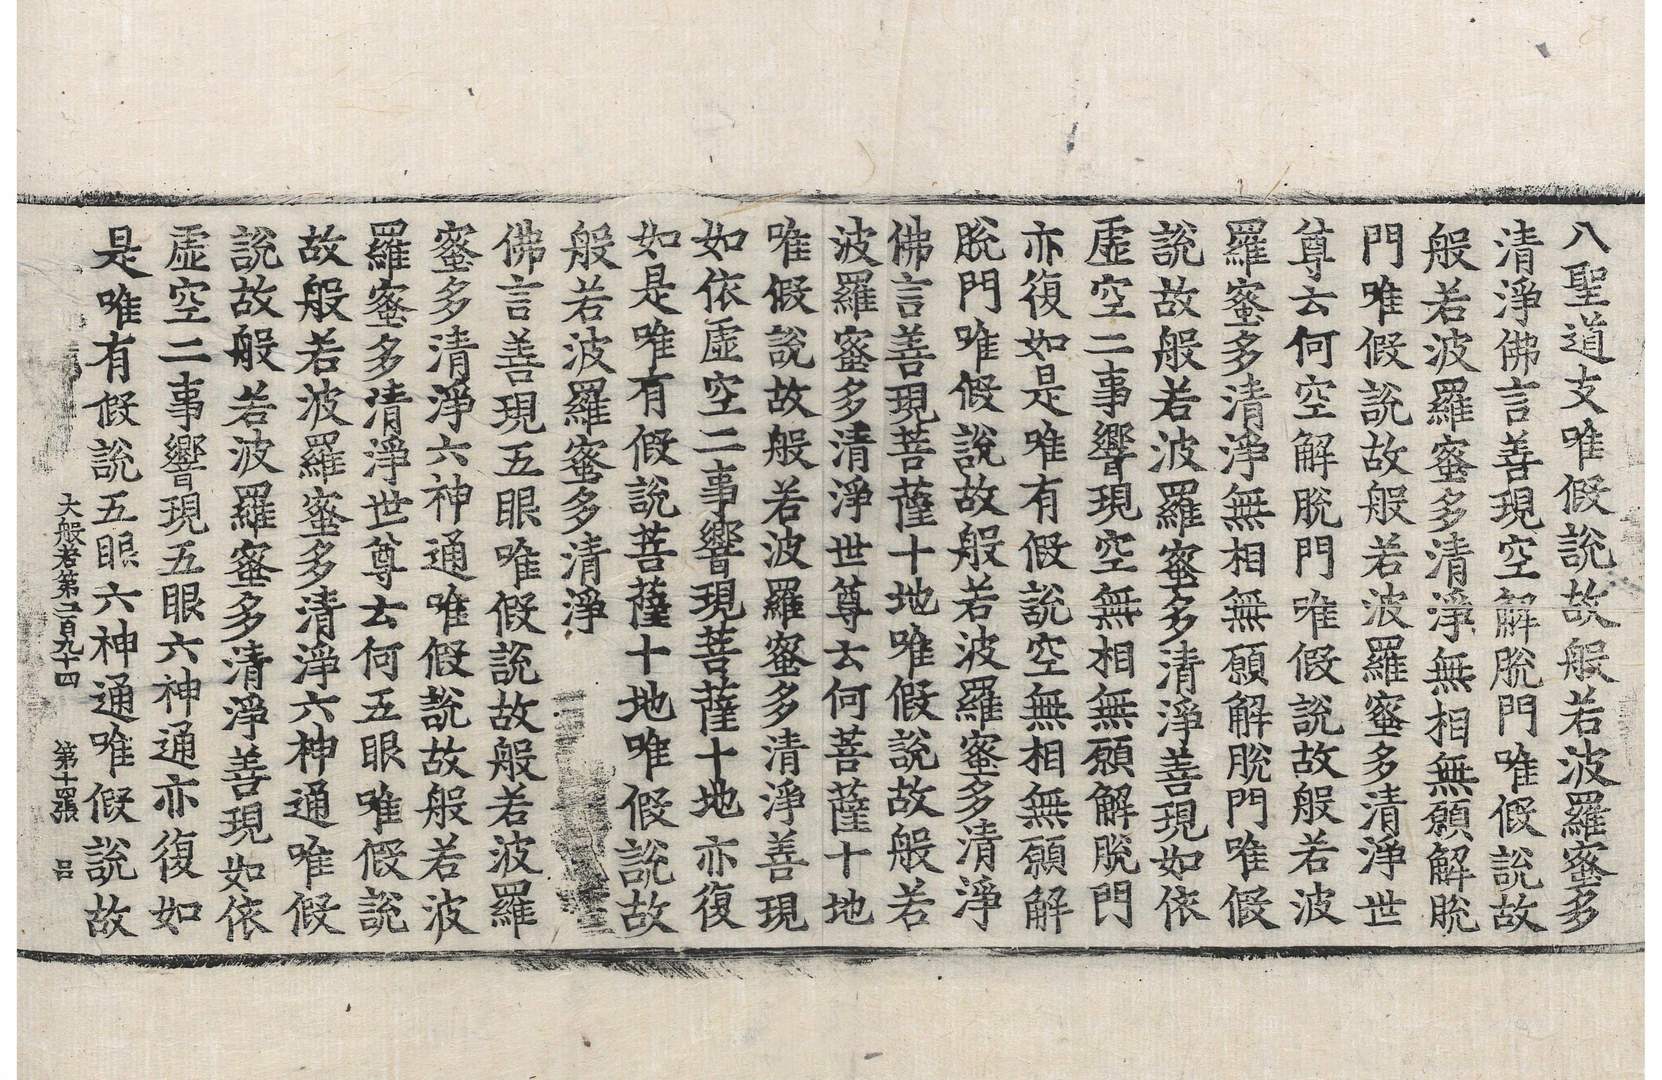 八聖道支唯假說故般若波羅蜜多
清淨佛言善現空解脫門唯假說故
般若波羅蜜多清淨無相無願解脫
門唯假說故般若波羅蜜多清淨世
尊云何空解脫門唯假說故般若波
羅蜜多清淨無相無願解脫門唯假
說故般若波羅蜜多清淨善現如依
虛空二事響現空無相無願解脫門
亦復如是唯有假說空無相無願解
脫門唯假說故般若波羅蜜多清淨
佛言善現菩薩十地唯假說故般若
波羅蜜多清淨世尊云何菩薩十地
唯假說故般若波羅蜜多清淨善現
如依虛空二事響現菩薩十地亦復
如是唯有假說菩薩十地唯假說故
般若波羅蜜多清淨
佛言善現五眼唯假說故般若波羅
蜜多清淨六神通唯假說故般若波
羅蜜多清淨世尊云何五眼唯假說
故般若波羅蜜多清淨六神通唯假
說故般若波羅蜜多清淨善現如依
虛空二事響現五眼六神通亦復如
是唯有假說五眼六神通唯假說故
大般若第二百九十四 第十四張 呂